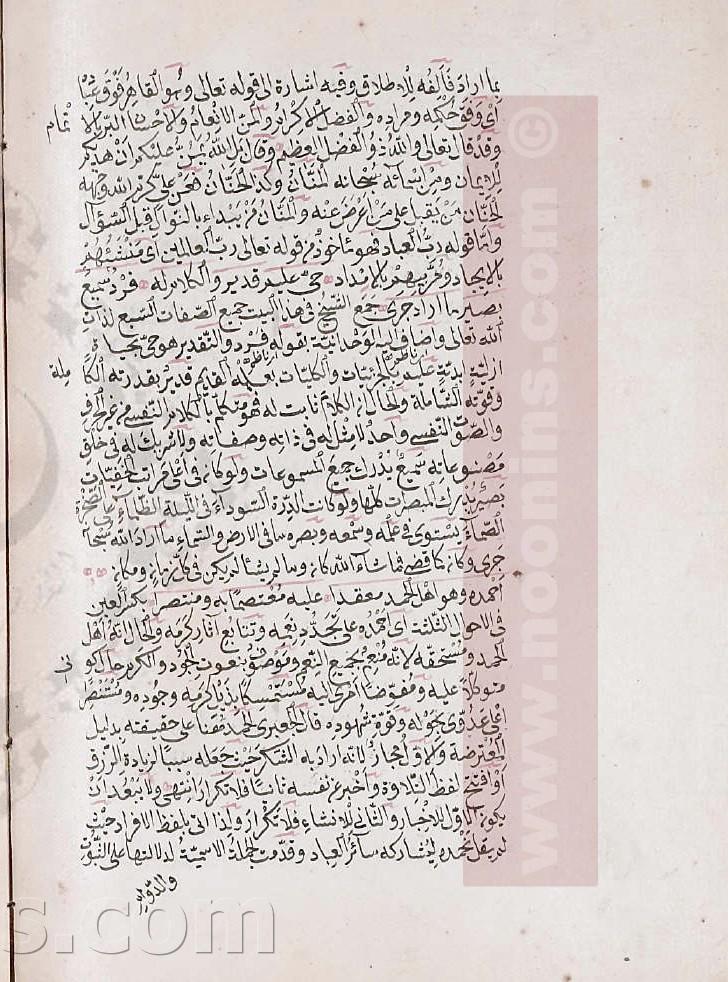 بما اراد فالفه للاطلاق وفيه اشارة الى قوله تعالى وهو القاهر فوق عباده
اى وفق حكمه ومراده والفضل الاكرام والمن الانعام والاحسان
تمام
وقد قال تعالى والله ذو الفضل العظيم وقال بل الله يمن عليكم ان هديكم
للايمان ومن اسمائه سبحانه المنان وكذا الحنان فعن على كرم الله وجهه
الحنان من يقبل على من اعرض عنه والمنان من يبداء بالنوال قبل السؤال
واما قوله رب العباد فهو مأخوذ من قوله تعالى رب العالمين اى منشئهم
بالايجاد ومربيهم بالامداد حى عليم قدير والكلام له فرد سميع
بصير ما اراد جرى جمع الشيخ فى هذا البيت جميع الصفات السبع لذات
الله تعالى واضاف اليه الوحدانية بقوله فرد والتقدير هو حى بحياة
ازلية ابدية عليم بالجزئيات والكليات بعلمه القديم قدير بقدرته الكا
ملة
وقوته الشاملة والحال ان الكلام ثابت له فهو متكلم بالكلام النفسى من غير الحرف
والصوت النفسى واحد لا مثل له فى ذاته وصفاته ولا شريك له فى خلق
مصنوعاته سميع يدرك جميع المسموعات ولو كان فى اعلى مراتب الخفيات
بصير يدرك المبصرات كلها ولو كانت الذرة السوداء فى الليلة الظلماء على الصخرة
الصماء يستوى فى علمه وسمعه وبصره ما فى الارض والسماء ما اراد الله سبحانه
جرى وكان كما قضى فما شاء الله كان وما لم يشأ لم يكن فى كل زمان ومكان
احمده وهو اهل الحمد معتمدا عليه معتصما به ومنتصرا بكسر العين
فى الاحوال الثلثة اى احمده على تجدد نعمه وتتابع آثار كرمه والحال انه اهل
الحمد ومستحقه لانه منعم بجميع النعم وموصوف بنعوت الجود والكرم حال كو
نى
متوكلا عليه ومفوضا امرى اليه مستمسكا بذيل كرمه وجوده ومستنصرا
على عدوى بحوله وقوة شهوده قال الجعبرى الحمد هنا على حقيقته بدليل
المعترضة والاول مجاز لانه اراد به الشكر حيث جعله سببا لزيادة الرزق
او افتتح لفظ التلاوة واخبر عن نفسه ثانيا فلا تكرار انتهى ولا يبعد ان
يكون الاول للاخبار والثانى للانشاء فلا تكرار ولذا اتى بلفظ الافراد حيث
لم يقل نحمده ليشاركه سائر العباد وقدمت الجملة الاسمية لدلالتها على الثبوت
والدوام
www.noonins.com ©
s.com